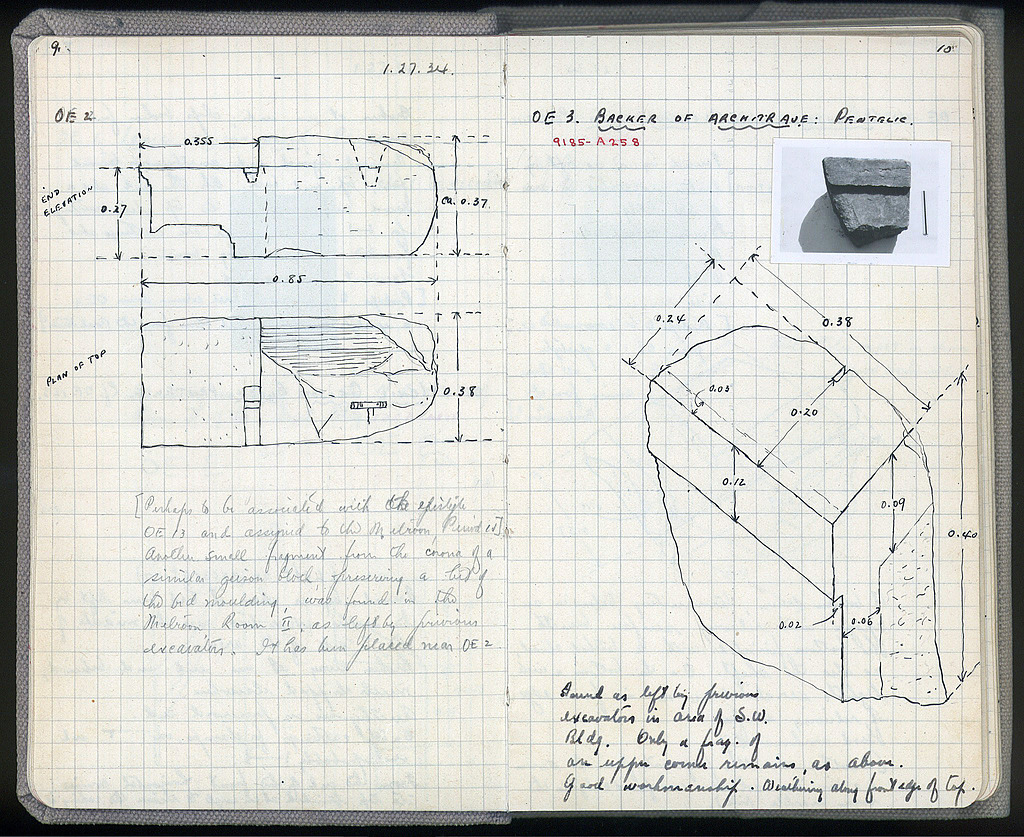 9.
1.27.34.
OE 2
0.355
END
ELEVATION
0.27
ca. 0.37
0.85
PLAN OF TOP
0.38
[Perhaps to be associated with the epistyle
OE 13 and assigned to the Metroon Period IV]
Another small fragment from the corona of a
similar geison block preserving a bit of
the bed moulding, was found in the
Metroon Room II, as left by previous
excavators. It has been placed near OE 2
10
OE 3. BACKER OF ARCHITRAVE: PENTELIC.
9185-A258
0.24
0.38
0.05
0.20
0.12
0.09
0.40
0.02
0.06
Found as left by previous
excavators in area of S.W.
Bldg. Only a frag. of
an upper corner remains, as above.
Good workmanship. Weathering along front edge of top.